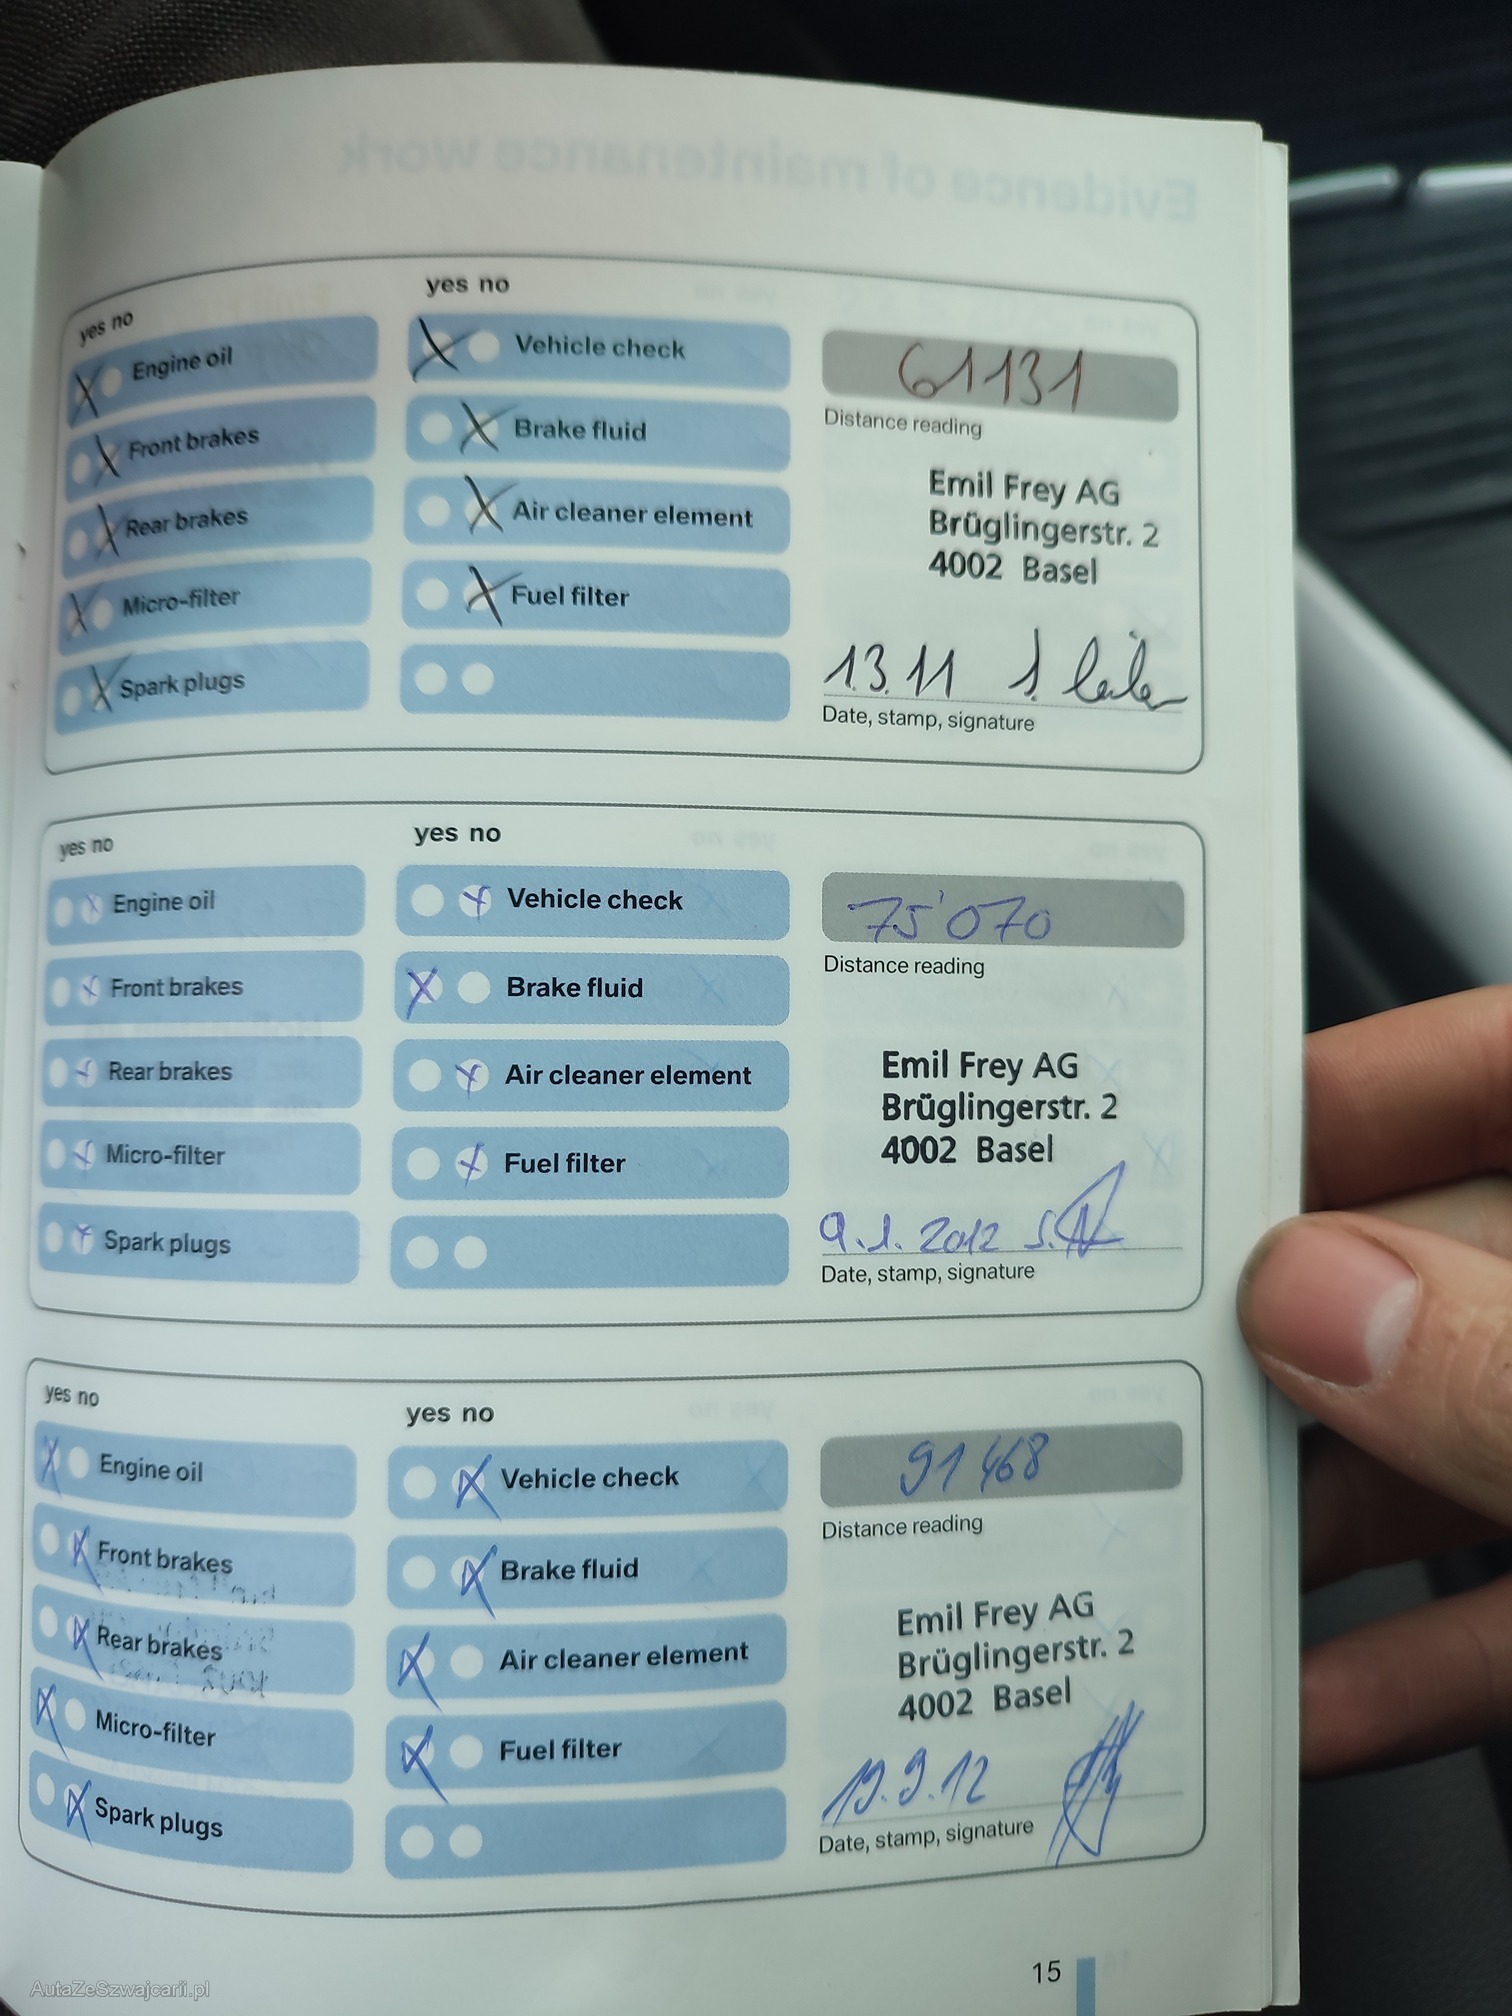 Evidence of maintenance work
yes no
Engine oil
Front brakes
Rear brakes
Micro-filter
Spark plugs
yes no
Vehicle check
Brake fluid
Air cleaner element
Fuel filter
61131
Distance reading
Emil Frey AG
Brüglingerstr. 2
4002 Basel
1.3.11
Date, stamp, signature
yes no
Engine oil
Front brakes
Rear brakes
Micro-filter
Spark plugs
yes no
Vehicle check
Brake fluid
Air cleaner element
Fuel filter
75'070
Distance reading
Emil Frey AG
Brüglingerstr. 2
4002 Basel
9.1.2012
Date, stamp, signature
yes no
Engine oil
Front brakes
Rear brakes
Micro-filter
Spark plugs
yes no
Vehicle check
Brake fluid
Air cleaner element
Fuel filter
91468
Distance reading
Emil Frey AG
Brüglingerstr. 2
4002 Basel
19.9.12
Date, stamp, signature
15
AutaZeSzwajcarii.pl